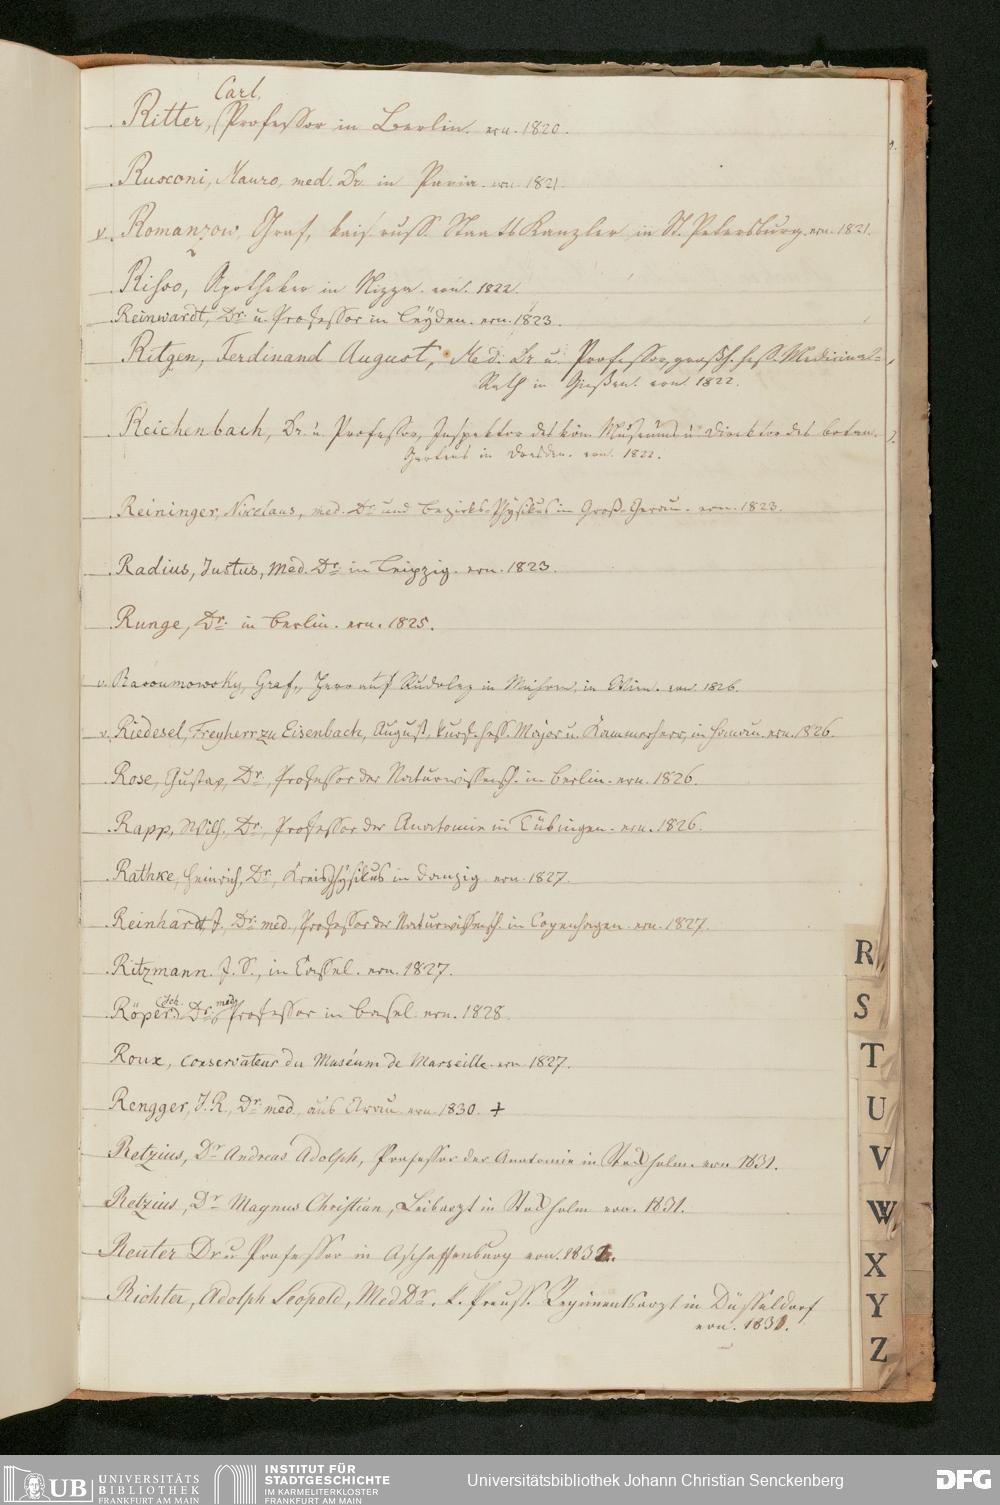 Carl.
Ritter, Professor in Berlin. ern. 1820.
Rusconi, Mauro, med. Dr. in Pavia. ern. 1821.
v. Romanzow, Graf, kais. russ. Staats Kanzler in St. Petersburg. ern. 1821.
Risso, Apotheker in Nizza. ern. 1822.
Reinwardt, Dr. u. Professor in Leyden. ern. 1823.
Ritgen, Ferdinand August, Med. Dr. u. Professor, großh. hess. Medicinal-
Rath in Gießen. ern. 1822.
Reichenbach, Dr. u. Professor, Inspektor des kön. Museums u. Direktor des botan.
Gartens in Dresden. ern. 1822.
Reininger, Nicolaus, med. Dr. und Bezirks-Physikus in Groß-Gerau. ern. 1823.
Radius, Justus, Med. Dr. in Leipzig. ern. 1823.
Runge, Dr. in Berlin. ern. 1825.
v. Rasoumowsky, Graf, Herr auf Rudolez in Mähren, in Wien. ern. 1826.
v. Riedesel, Freyherr zu Eisenbach, August, kurf. hess. Major u. Kammerherr, in Hanau. ern. 1826.
Rose, Gustav, Dr., Professor der Naturwissensch. in Berlin. ern. 1826.
Rapp, Wilh., Dr., Professor der Anatomie in Tübingen. ern. 1826.
Rathke, Heinrich, Dr., Kreisphysikus in Danzig. ern. 1827.
Reinhardt, J., Dr. med., Professor der Naturwissensch. in Copenhagen. ern. 1827.
Ritzmann. J. S., in Cassel. ern. 1827.
Röper, Dr. med. Professor in Basel. ern. 1828.
Roux, Conservateur du Muséum de Marseille. ern. 1827.
Rengger, J. R., Dr. med. aus Arau. ern. 1830. +
Retzius, Dr. Andreas Adolph, Professor der Anatomie in Stockholm. ern. 1831.
Retzius, Dr. Magnus Christian, Leibarzt in Stockholm. ern. 1831.
Reuter Dr. u. Professor in Aschaffenburg ern. 1831.
Richter, Adolph Leopold, Med Dr. k. Preuss. Regimentsarzt in Düsseldorf
ern. 1831.
R
S
T
U
V
W
X
Y
Z
UB UNIVERSITÄTS
BIBLIOTHEK
FRANKFURT AM MAIN
INSTITUT FÜR
STADTGESCHICHTE
IM KARMELITERKLOSTER
FRANKFURT AM MAIN
Universitätsbibliothek Johann Christian Senckenberg
DFG